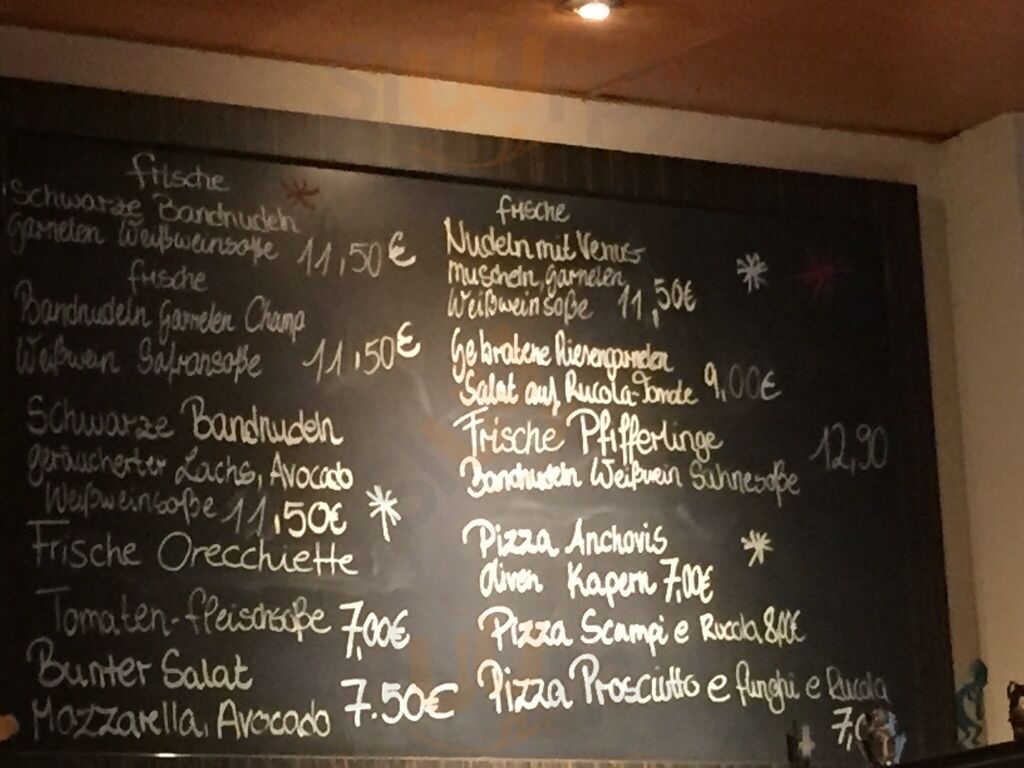 frische
Schwarze Bandnudeln
Garnelen Weißweinsoße 11,50€
frische
Bandnudeln Garnelen Champ
Weißwein Safransoße 11,50€
Schwarze Bandnudeln
geräucherter Lachs, Avocado
Weißweinsoße 11,50€
Frische Orecchiette
Tomaten-fleischsoße 7,00€
Bunter Salat
Mozzarella, Avocado 7.50€
frische
Nudeln mit Venus
muscheln, garnelen,
Weißweinsoße 11,50€
Gebratene Riesengarnelen
Salat auf Rucola-Tomate 9,00€
Frische Pfifferlinge 12,90
Bandnudeln Weißwein Sahnesoße
Pizza Anchovis
Oliven Kapern 7,00€
Pizza Scampi e Rucola 8,00€
Pizza Prosciutto e funghi e Rucola